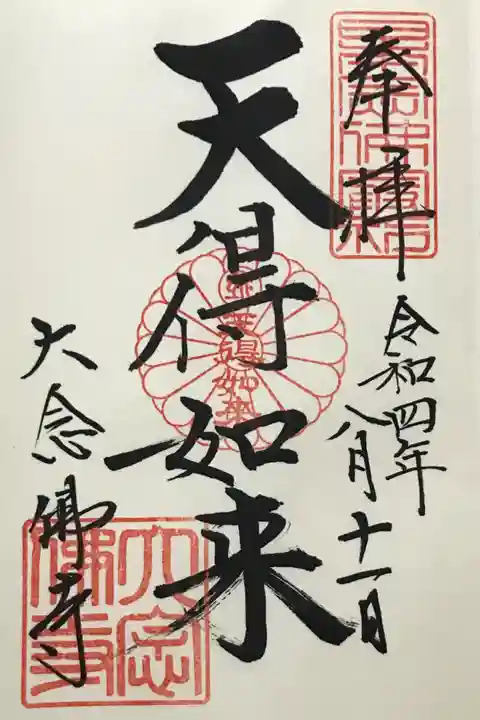 奉拝
令和四年
八月十一日
天得如来
大念佛寺
大念佛寺